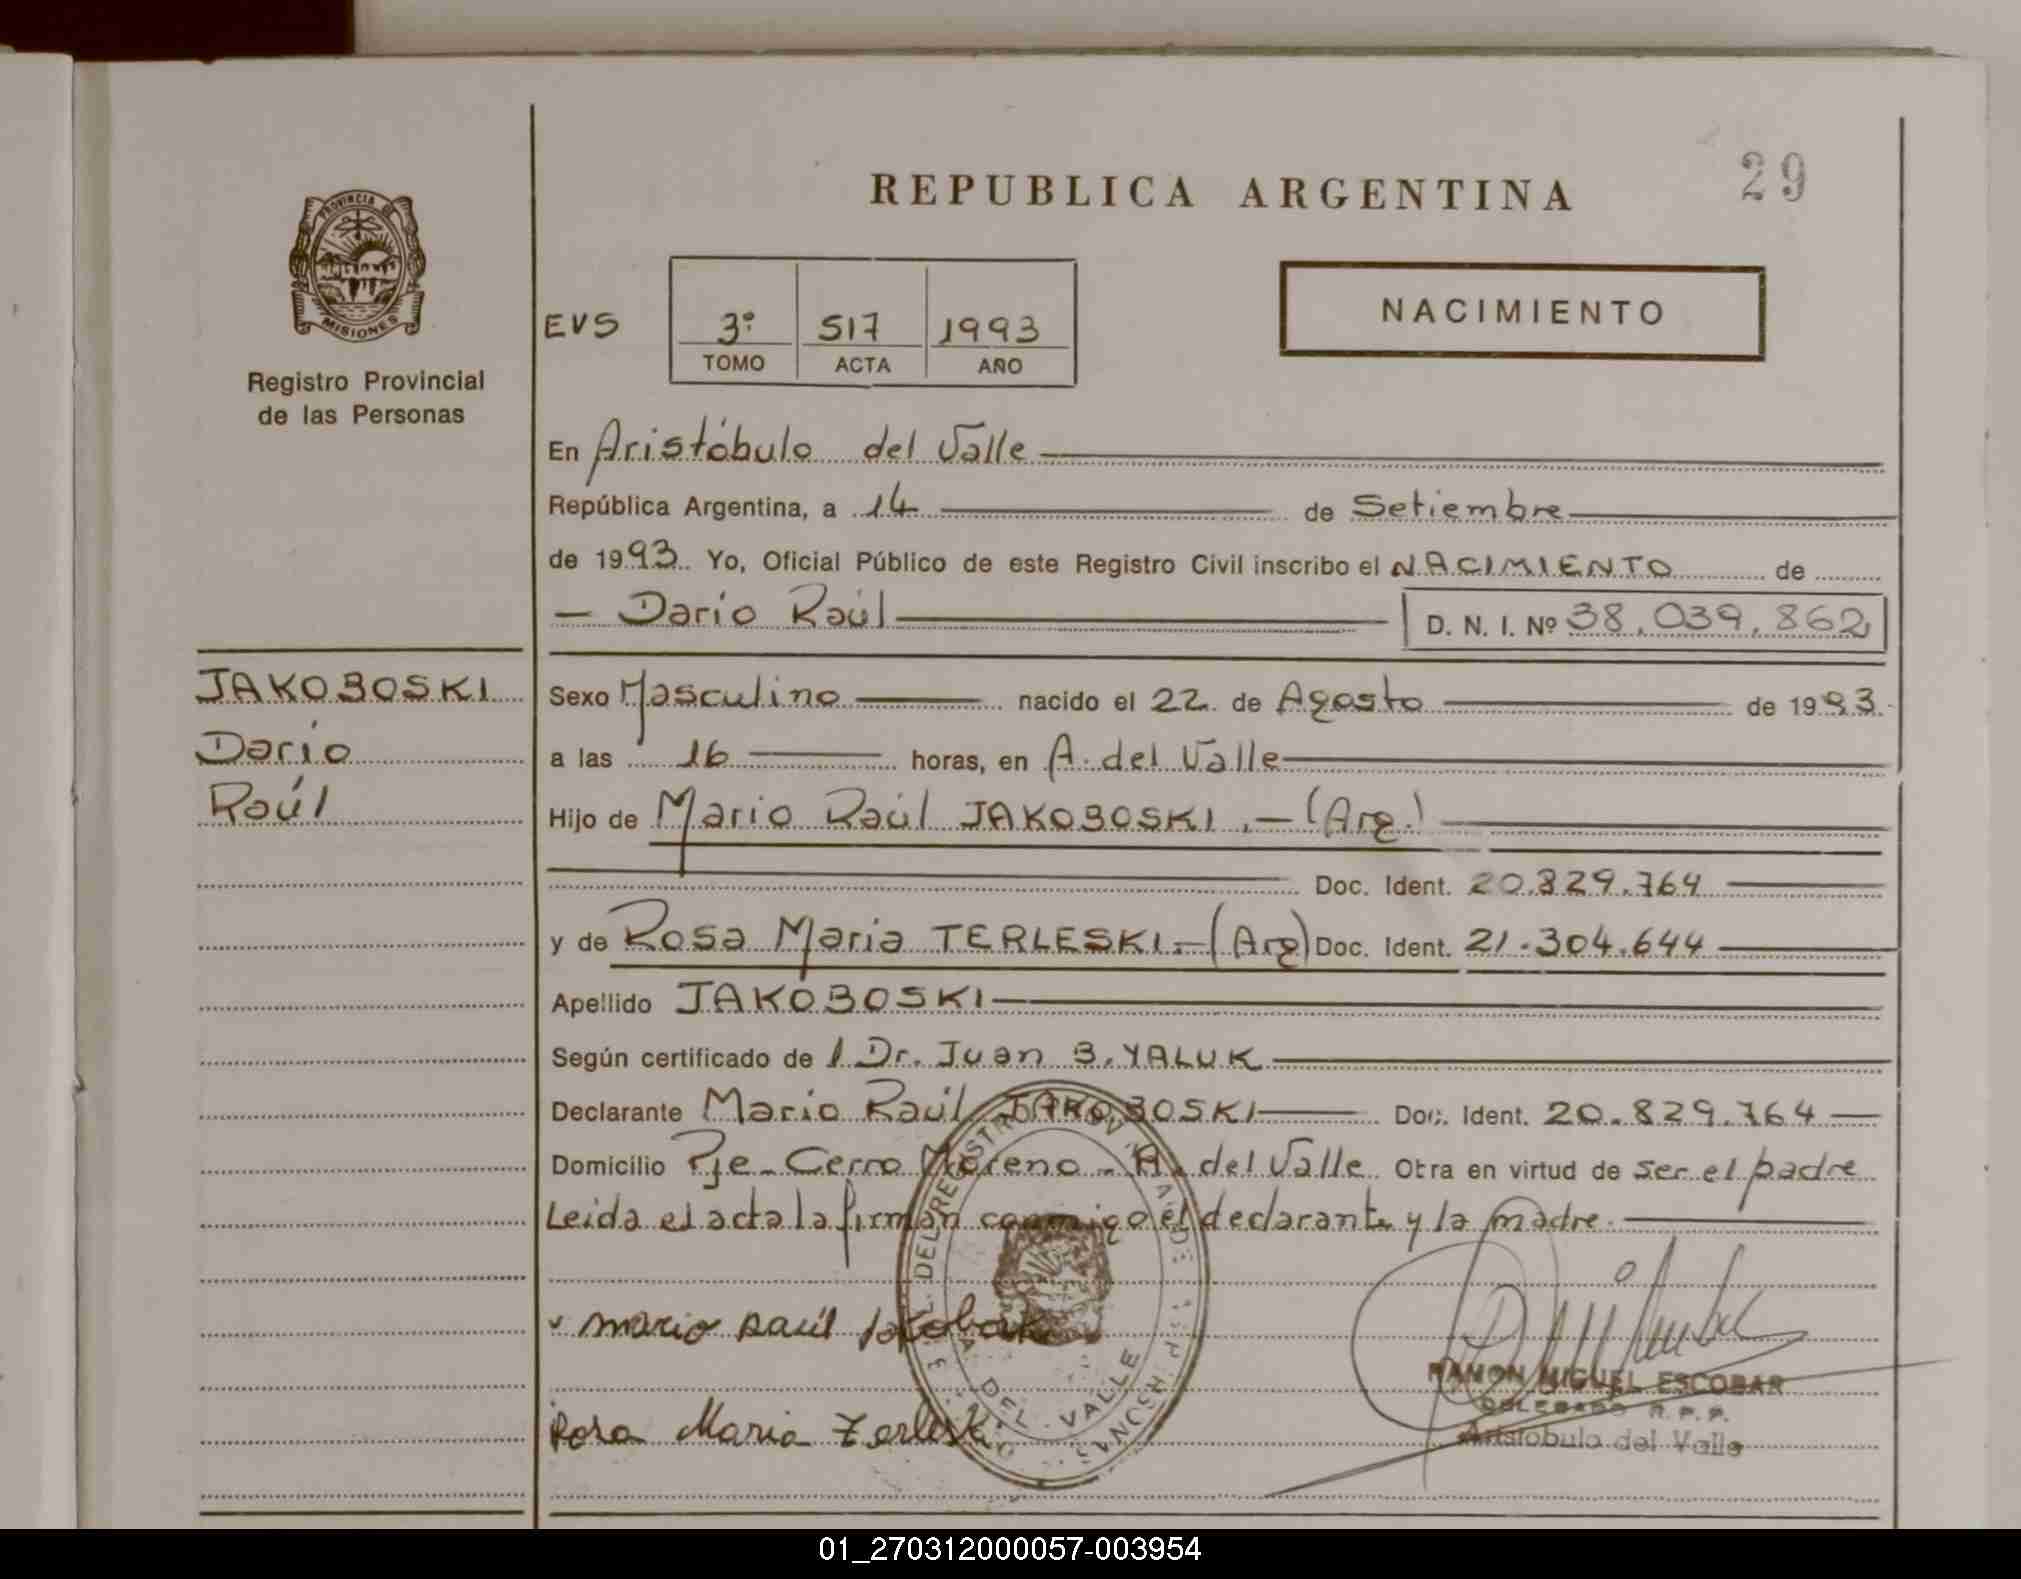 29
REPUBLICA ARGENTINA
PROVINCIA DE
MISIONES
Registro Provincial
de las Personas
EVS
3º 517 1993
TOMO ACTA AÑO
NACIMIENTO
En Aristóbulo del Valle
República Argentina, a 14 de Setiembre
de 1993. Yo, Oficial Público de este Registro Civil inscribo el NACIMIENTO de
— Darío Raúl — D. N. I. Nº 38.039.862
JAKOBOSKI
Darío
Raúl
Sexo Masculino nacido el 22 de Agosto de 1993.
a las 16 horas, en A. del Valle
Hijo de Mario Raúl JAKOBOSKI.—(Arg.)
Doc. Ident. 20.829.764
y de Rosa Maria TERLESKI.—(Arg) Doc. Ident. 21.304.644
Apellido JAKOBOSKI
Según certificado de l Dr. Juan B. YALUK
Declarante Mario Raúl JAKOBOSKI Doc. Ident. 20.829.764
Domicilio Pje. Cerro Moreno - A. del Valle Otra en virtud de ser el padre
Leida el acta la firman conmigo el declarante y la madre.
mario Raúl Jakoboski
Rosa Maria Terleski
DEL REGISTRO PROV DE PERSONAS
A. DEL VALLE
RAMON MIGUEL ESCOBAR
DELEGADO R.P.P.
Aristóbulo del Valle
01_270312000057-003954